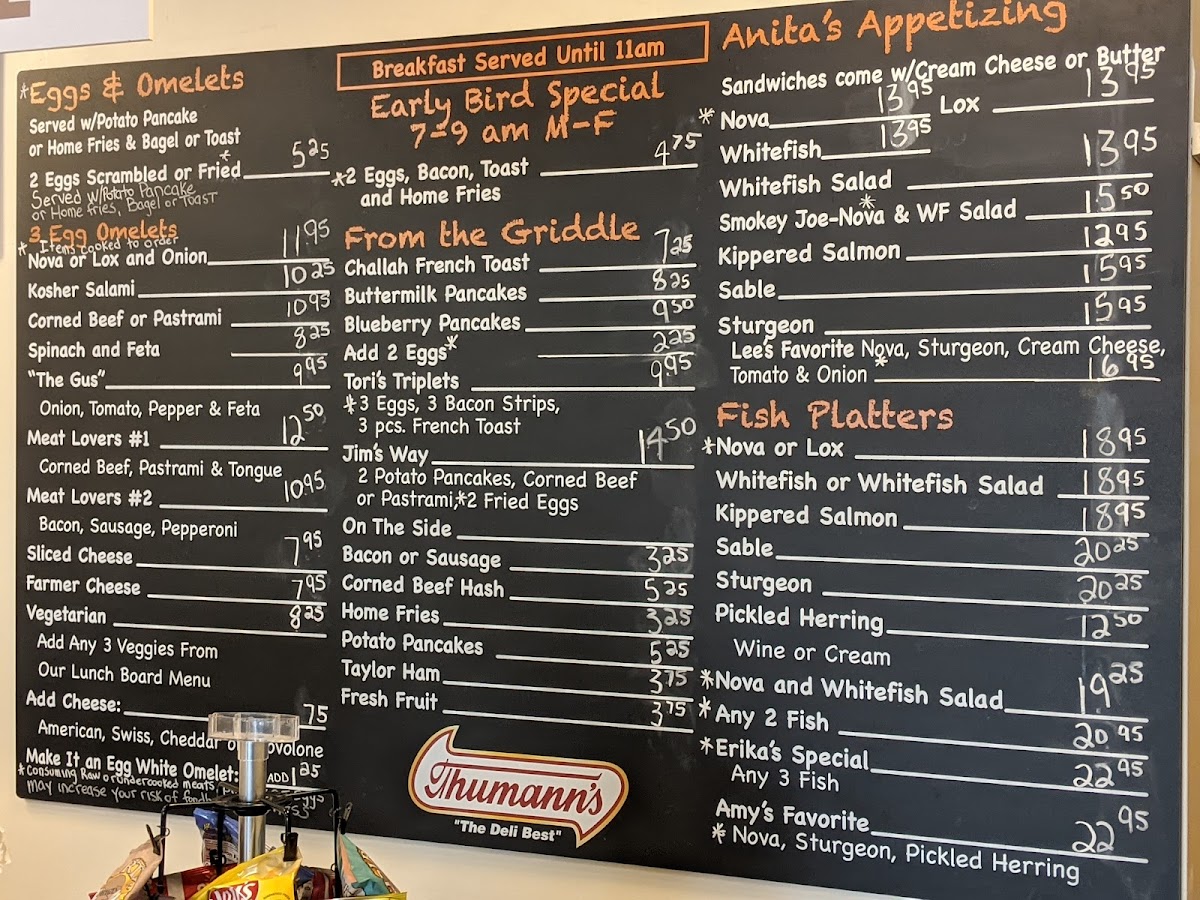 *Eggs & Omelets
Served w/Potato Pancake
or Home Fries & Bagel or Toast
2 Eggs Scrambled or Fried* 5 25
Served w/Potato Pancake
or Home Fries, Bagel or Toast
3 Egg Omelets
* Items cooked to order
Nova or Lox and Onion 11.95
Kosher Salami 10 25
Corned Beef or Pastrami 10 95
Spinach and Feta 8 25
"The Gus" 9 95
Onion, Tomato, Pepper & Feta
Meat Lovers #1 12 50
Corned Beef, Pastrami & Tongue
Meat Lovers #2 10 95
Bacon, Sausage, Pepperoni
Sliced Cheese 7 95
Farmer Cheese 7 95
Vegetarian 8 25
Add Any 3 Veggies From
Our Lunch Board Menu
Add Cheese: 75
American, Swiss, Cheddar
Make It an Egg White Omelet: ADD 1 25
*Consuming Raw or undercooked meats,
may increase your risk of
Breakfast Served Until 11am
Early Bird Special
7-9 am M-F
*2 Eggs, Bacon, Toast 4 75
and Home Fries
From the Griddle
Challah French Toast 7 25
Buttermilk Pancakes 8 25
Blueberry Pancakes 9 50
Add 2 Eggs* 2 25
Tori's Triplets 9.95
*3 Eggs, 3 Bacon Strips,
3 pcs. French Toast
Jim's Way 14 50
2 Potato Pancakes, Corned Beef
or Pastrami,*2 Fried Eggs
On The Side
Bacon or Sausage 3 25
Corned Beef Hash 5 25
Home Fries 3 25
Potato Pancakes 5 25
Taylor Ham 3 75
Fresh Fruit 3 75
Thumann's
"The Deli Best"
Anita's Appetizing
Sandwiches come w/Cream Cheese or Butter
* Nova 13 95 Lox 13 95
Whitefish 13 95
Whitefish Salad 13 95
Smokey Joe-Nova* & WF Salad 15 50
Kippered Salmon 12 95
Sable 15 95
Sturgeon 15 95
Lee's Favorite Nova, Sturgeon, Cream Cheese,
Tomato & Onion * 16 95
Fish Platters
*Nova or Lox 18 95
Whitefish or Whitefish Salad 18 95
Kippered Salmon 18 95
Sable 20 25
Sturgeon 20 25
Pickled Herring 12 50
Wine or Cream
*Nova and Whitefish Salad 19 25
*Any 2 Fish 20 95
*Erika's Special 22 95
Any 3 Fish
Amy's Favorite 22 95
* Nova, Sturgeon, Pickled Herring
Lay's